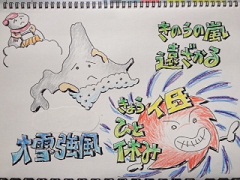 きのうの嵐
遠ざかる
大雪強風
きょうイ圧
ひと休み